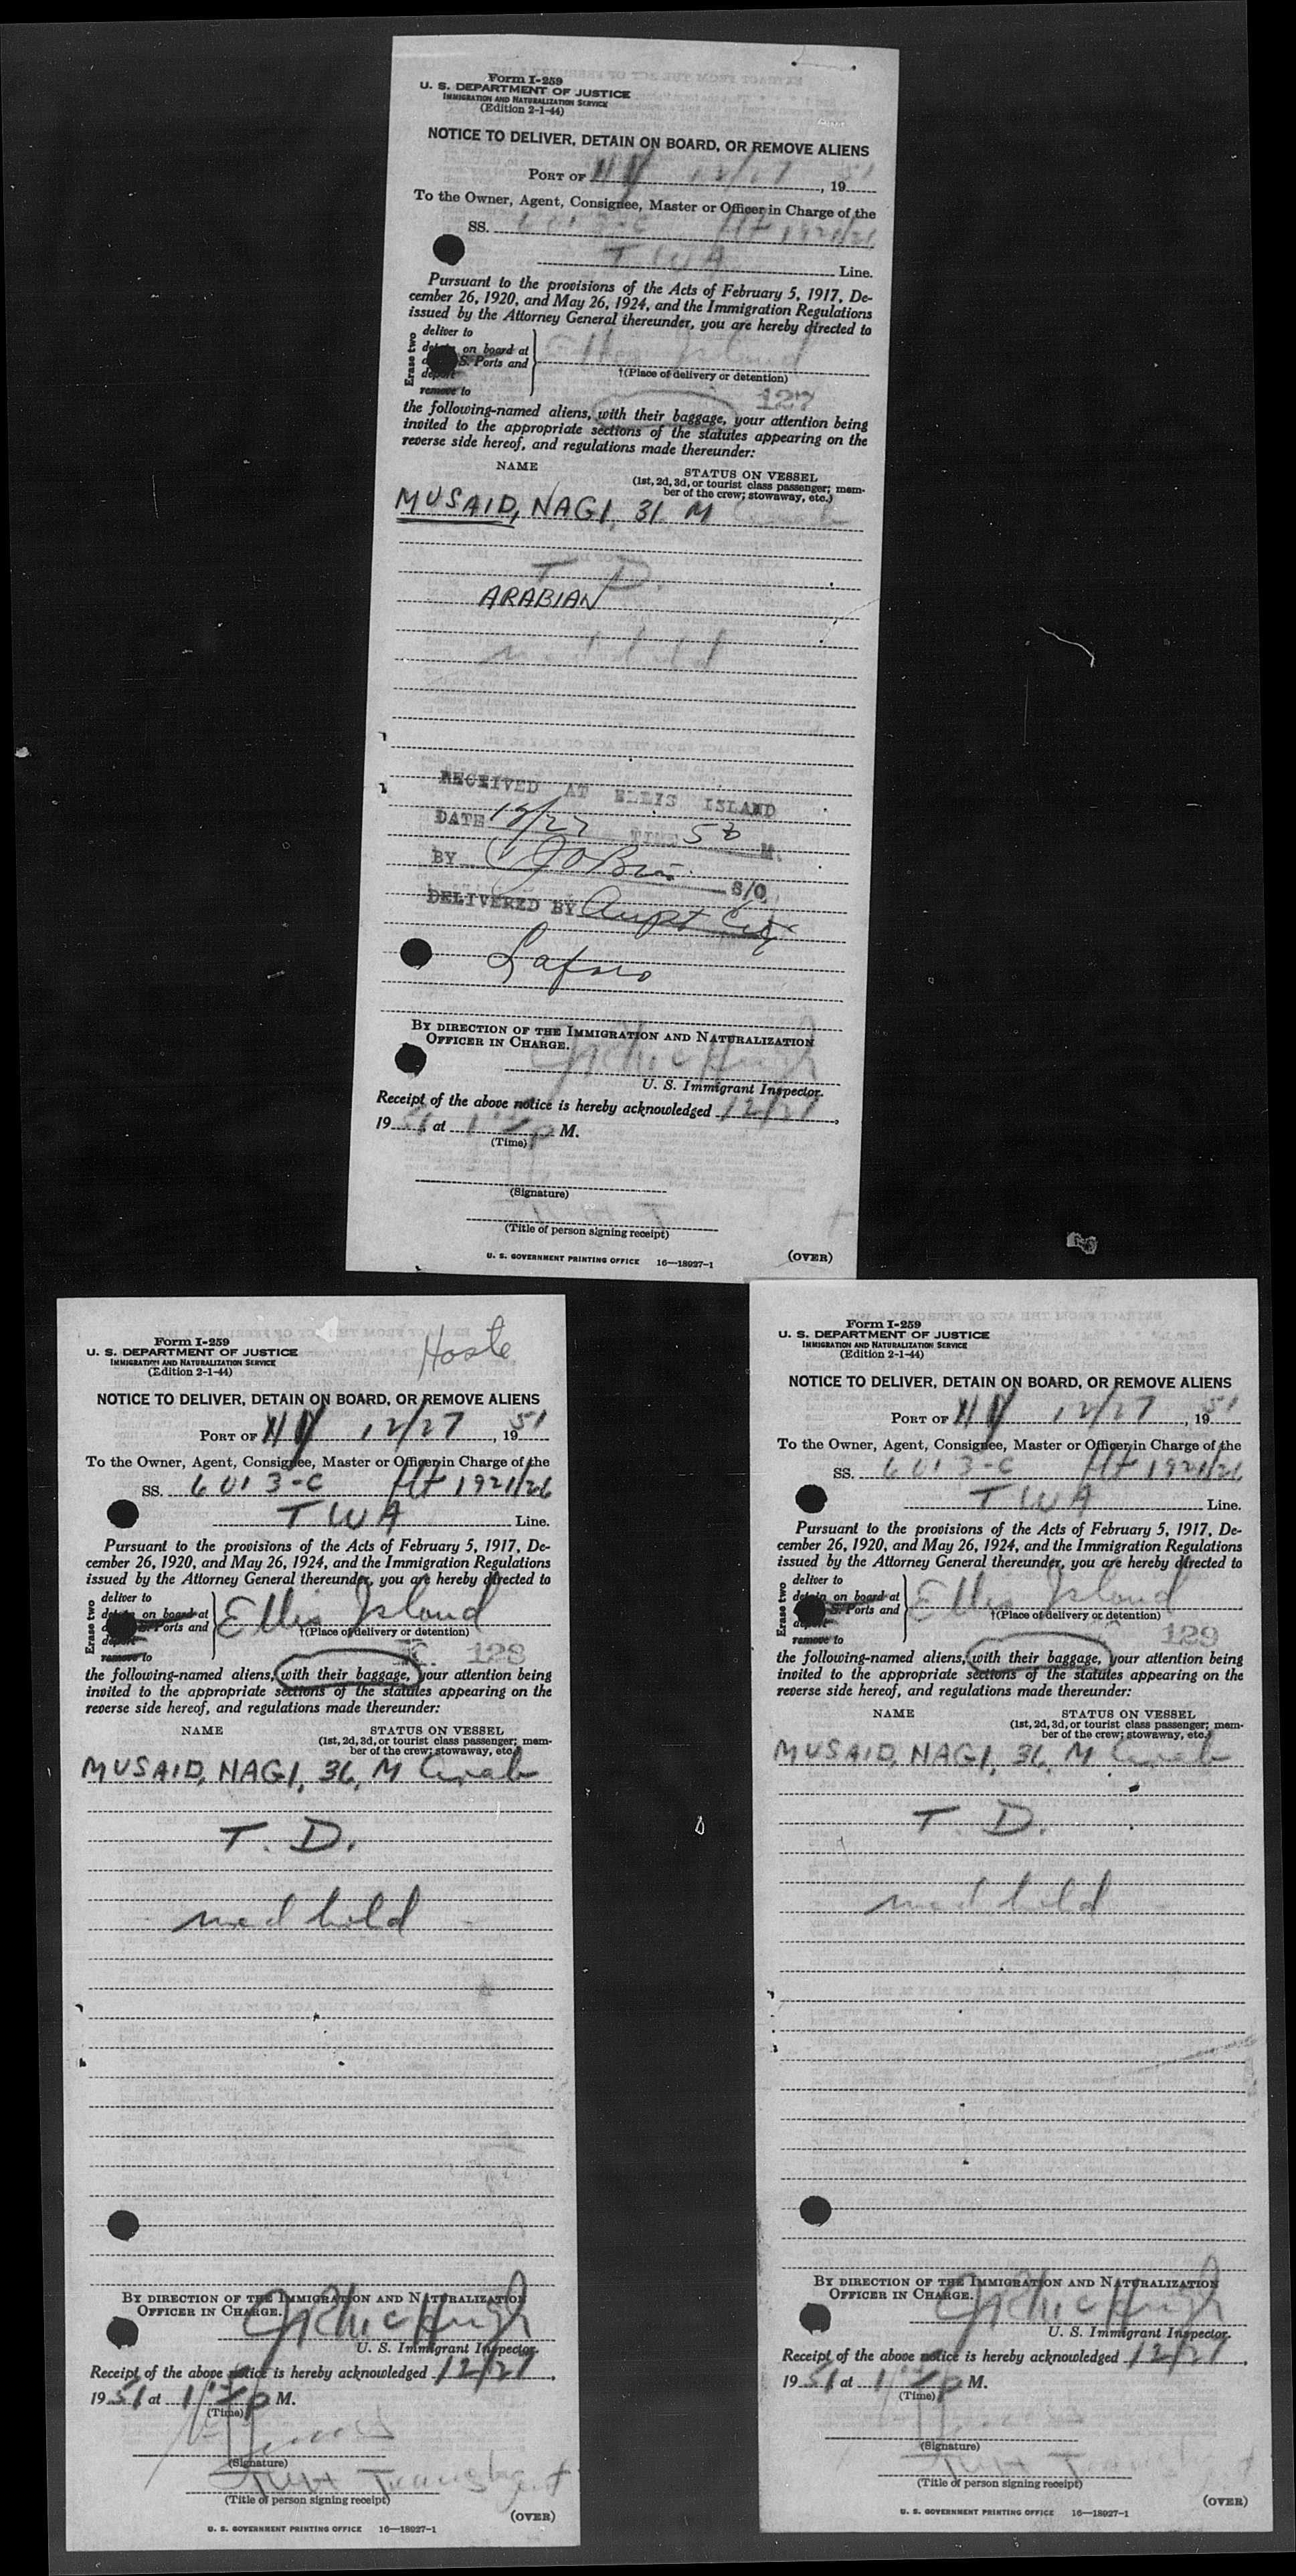 Form I-259
U. S. DEPARTMENT OF JUSTICE
IMMIGRATION AND NATURALIZATION SERVICE
(Edition 2-1-44)
NOTICE TO DELIVER, DETAIN ON BOARD, OR REMOVE ALIENS
PORT OF NY 12/27, 1951
To the Owner, Agent, Consignee, Master or Officer in Charge of the
SS. 6013-C Flt 1921/26
TWA Line.
Pursuant to the provisions of the Acts of February 5, 1917, De-
cember 26, 1920, and May 26, 1924, and the Immigration Regulations
issued by the Attorney General thereunder, you are hereby directed to
Erase two
deliver to
on board at
S. Ports and
remove to
Ellis Island
†(Place of delivery or detention)
127
the following-named aliens, with their baggage, your attention being
invited to the appropriate sections of the statutes appearing on the
reverse side hereof, and regulations made thereunder:
NAME
STATUS ON VESSEL
(1st, 2d, 3d, or tourist class passenger; mem-
ber of the crew; stowaway, etc.)
MUSAID, NAGI, 31 M Arab
T. D.
ARABIAN
med hold
RECEIVED AT ELLIS ISLAND
DATE 12/27 TIME 5 M.
BY S/O
DELIVERED BY
BY DIRECTION OF THE IMMIGRATION AND NATURALIZATION
OFFICER IN CHARGE.
U. S. Immigrant Inspector.
Receipt of the above notice is hereby acknowledged 12/27,
1951 at 1 P M.
(Time)
(Signature)
(Title of person signing receipt)
U. S. GOVERNMENT PRINTING OFFICE 16—18927-1
(OVER)
Form I-259
U. S. DEPARTMENT OF JUSTICE
IMMIGRATION AND NATURALIZATION SERVICE
(Edition 2-1-44)
NOTICE TO DELIVER, DETAIN ON BOARD, OR REMOVE ALIENS
PORT OF NY 12/27, 1951
To the Owner, Agent, Consignee, Master or Officer in Charge of the
SS. 6013-C Flt 1921/26
TWA Line.
Pursuant to the provisions of the Acts of February 5, 1917, De-
cember 26, 1920, and May 26, 1924, and the Immigration Regulations
issued by the Attorney General thereunder, you are hereby directed to
Erase two
deliver to
on board at
Ports and
remove to
Ellis Island
†(Place of delivery or detention)
128
the following-named aliens, with their baggage, your attention being
invited to the appropriate sections of the statutes appearing on the
reverse side hereof, and regulations made thereunder:
NAME
STATUS ON VESSEL
(1st, 2d, 3d, or tourist class passenger; mem-
ber of the crew; stowaway, etc.)
MUSAID, NAGI, 36, M Arab
T. D.
med hold
BY DIRECTION OF THE IMMIGRATION AND NATURALIZATION
OFFICER IN CHARGE.
U. S. Immigrant Inspector.
Receipt of the above notice is hereby acknowledged 12/27,
1951 at 1 P M.
(Time)
(Signature)
(Title of person signing receipt)
(OVER)
U. S. GOVERNMENT PRINTING OFFICE 16—18927-1
Form I-259
U. S. DEPARTMENT OF JUSTICE
IMMIGRATION AND NATURALIZATION SERVICE
(Edition 2-1-44)
NOTICE TO DELIVER, DETAIN ON BOARD, OR REMOVE ALIENS
PORT OF NY 12/27, 1951
To the Owner, Agent, Consignee, Master or Officer in Charge of the
SS. 6013-C Flt 1921/26
TWA Line.
Pursuant to the provisions of the Acts of February 5, 1917, De-
cember 26, 1920, and May 26, 1924, and the Immigration Regulations
issued by the Attorney General thereunder, you are hereby directed to
Erase two
deliver to
detain on board at
S. Ports and
remove to
Ellis Island
†(Place of delivery or detention)
129
the following-named aliens, with their baggage, your attention being
invited to the appropriate sections of the statutes appearing on the
reverse side hereof, and regulations made thereunder:
NAME
STATUS ON VESSEL
(1st, 2d, 3d, or tourist class passenger; mem-
ber of the crew; stowaway, etc.)
MUSAID, NAGI, 36, M Arab
T. D.
med hold
BY DIRECTION OF THE IMMIGRATION AND NATURALIZATION
OFFICER IN CHARGE.
U. S. Immigrant Inspector.
Receipt of the above notice is hereby acknowledged 12/27,
1951 at 1 P M.
(Time)
(Signature)
(Title of person signing receipt)
(OVER)
U. S. GOVERNMENT PRINTING OFFICE 16—18927-1